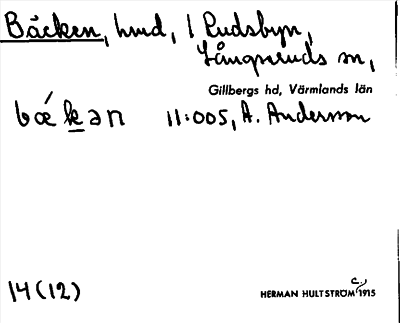 Bäcken, hmd, 1 Rudsbyn,
Långseruds sn,
Gillbergs hd, Värmlands län
bǽkən 11:005, A. Andersson
14 (12)
HERMAN HULTSTRÖM c., 1915